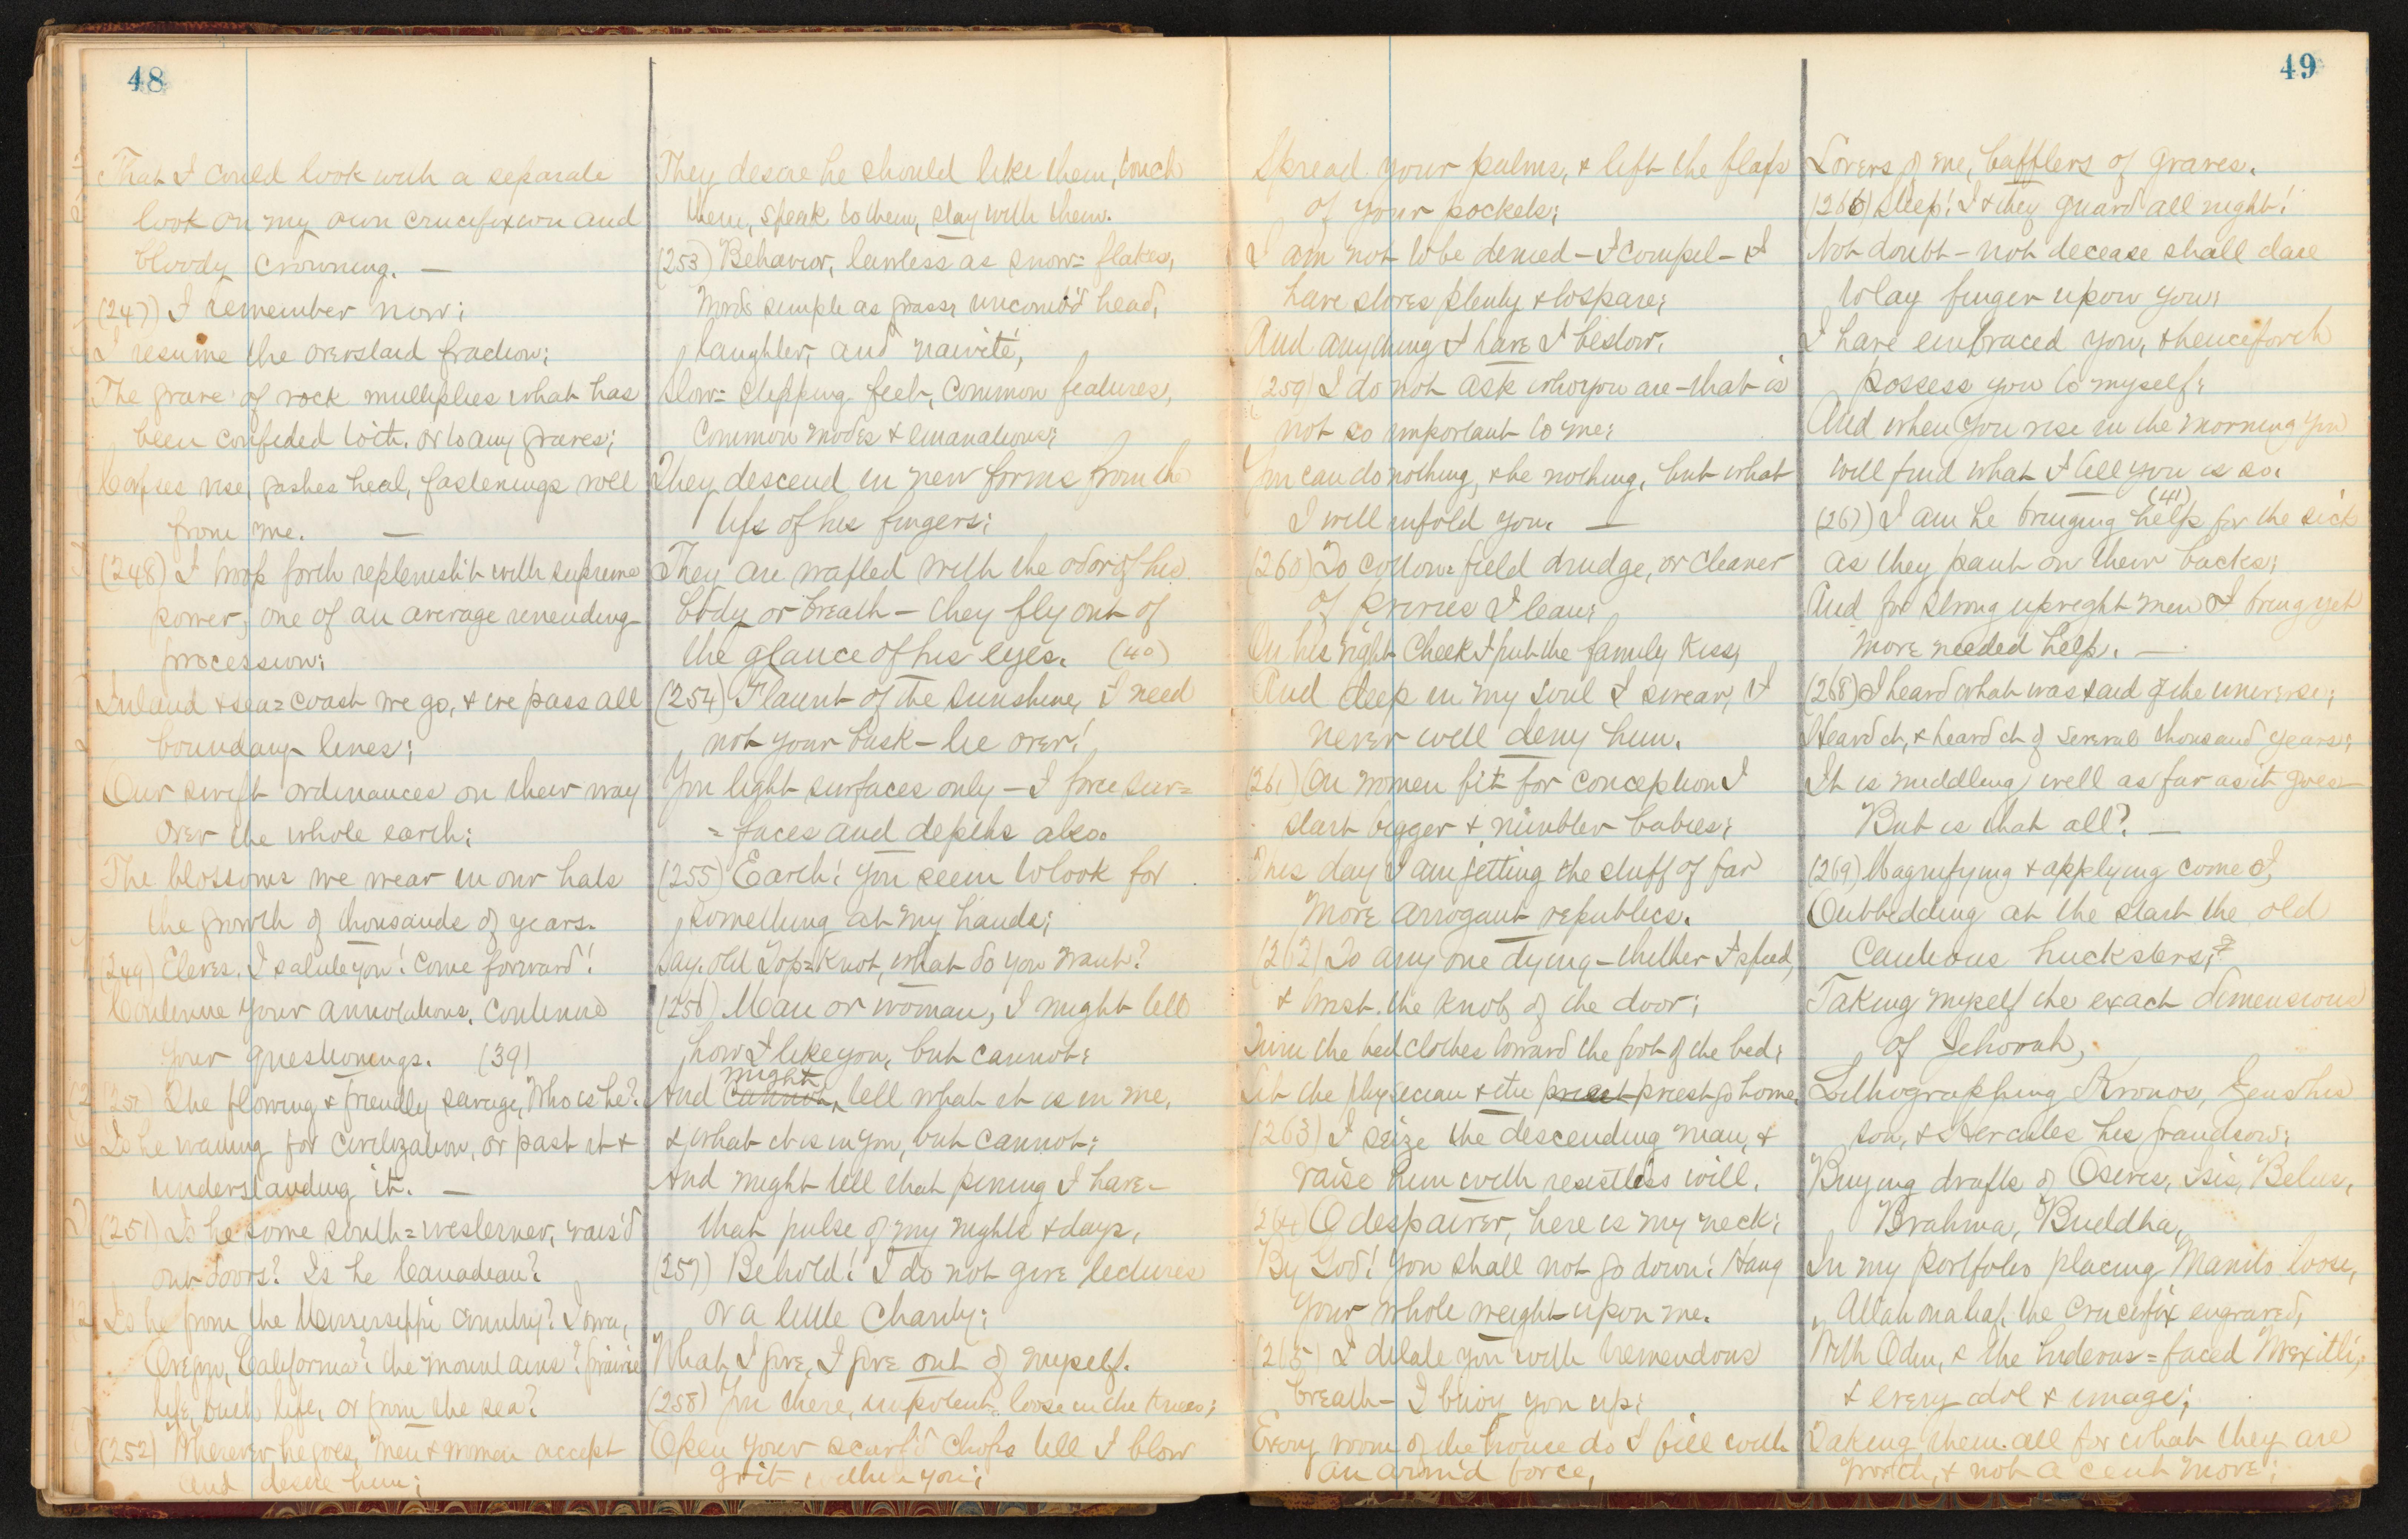 48
That I could look with a separate
look on my own crucifixion and
bloody crowning. —
(247) I remember now;
I resume the overstaid fraction;
The grave of rock multiplies what has
been confided to it, or to any graves;
Corpses rise, gashes heal, fastenings roll
from me. —
(248) I troop forth replenish't with supreme
power, one of an average unending
procession;
Inland & sea=coast we go, & we pass all
boundary lines;
Our swift ordinances on their way
over the whole earth;
The blossoms we wear in our hats
the growth of thousands of years.
(249) Eleves, I salute you! Come forward!
Continue your annotations, continue
your questionings. (39)
The flowing & friendly savage, Who is he?
Is he waiting for civilization, or past it &
understanding it. —
(251) Is he some south=westerner, rais'd
out=doors? Is he Canadian?
Is he from the Mississippi country? Iowa,
Oregon, California? the mountains? prairie
life, bush life, or from the sea?
(252) Wherever he goes, men & women accept
and desire him;
They desire he should like them, touch
them, speak to them, stay with them.
(253) Behavior, lawless as snow=flakes,
words simple as grass, uncomb'd head,
laughter, and naiveté,
Slow=stepping feet, common features,
common modes & emanations;
They descend in new forms from the
tips of his fingers;
They are wafted with the odor of his
body or breath — they fly out of
the glance of his eyes. (40)
(254) Flaunt of the sunshine, I need
not your bask — lie over!
You light surfaces only — I force sur=
=faces and depths also.
(255) Earth! you seem to look for
something at my hands;
Say, old Top=Knot, what do you want?
(256) Man or woman, I might tell
how I like you, but cannot;
might
And cannot tell what it is in me,
& what it is in you, but cannot;
And might tell that pining I have —
that pulse of my nights & days,
(257) Behold! I do not give lectures
or a little charity;
What I give, I give out of myself.
(258) You there, impotent, loose in the knees;
Open your scarf'd chops till I blow
grit within you;
49
Spread your palms, & lift the flaps
of your pockets;
I am not to be denied — I compel — I
have stores plenty & to spare;
And anything I have I bestow.
(259) I do not ask who you are — that is
not so important to me;
You can do nothing, & be nothing, but what
I will infold you. —
(260) To cotton=field drudge, or cleaner
of privies I lean;
On his right cheek I put the family kiss,
And deep in my soul I swear, I
never will deny him.
(261) On women fit for conception I
start bigger & nimbler babies;
This day I am jetting the stuff of far
more arrogant republics.
(262) To any one dying — thither I speed,
& twist the knob of the door;
Turn the bedclothes toward the foot of the bed;
Let the physician & the priest priest go home.
(263) I seize the descending man, &
raise him with resistless will,
264) O despairer, here is my neck;
By God! you shall not go down! Hang
your whole weight upon me.
(265) I dilate you with tremendous
breath — I buoy you up;
Every room of the house do I fill with
an arm'd force,
Lovers of me, bafflers of graves.
(266) Sleep! I & they guard all night!
Not doubt — not decease shall dare
to lay finger upon you;
I have embraced you, & henceforth
possess you to myself;
And when you rise in the morning you
will find what I tell you is so.
(41)
(267) I am he bringing help for the sick
as they pant on their backs;
And for strong upright men I bring yet
more needed help. —
(268) I heard what was said of the universe;
Heard it, & heard it of several thousand years;
It is middling well as far as it goes —
But is that all? —
(269) Magnifying & applying come I,
Outbidding at the start the old
cautious hucksters;
Taking myself the exact dimensions
of Jehovah,
Lithographing Kronos, Zeus his
son, & Hercules his grandson;
Buying drafts of Osiris, Isis, Belus,
Brahma, Buddha,
In my portfolio placing Manito loose,
Allah on a leaf, the crucifix engraved,
With Odin, & the hideous=faced Mexitli,
& every idol & image;
Taking them all for what they are
worth, & not a cent more;